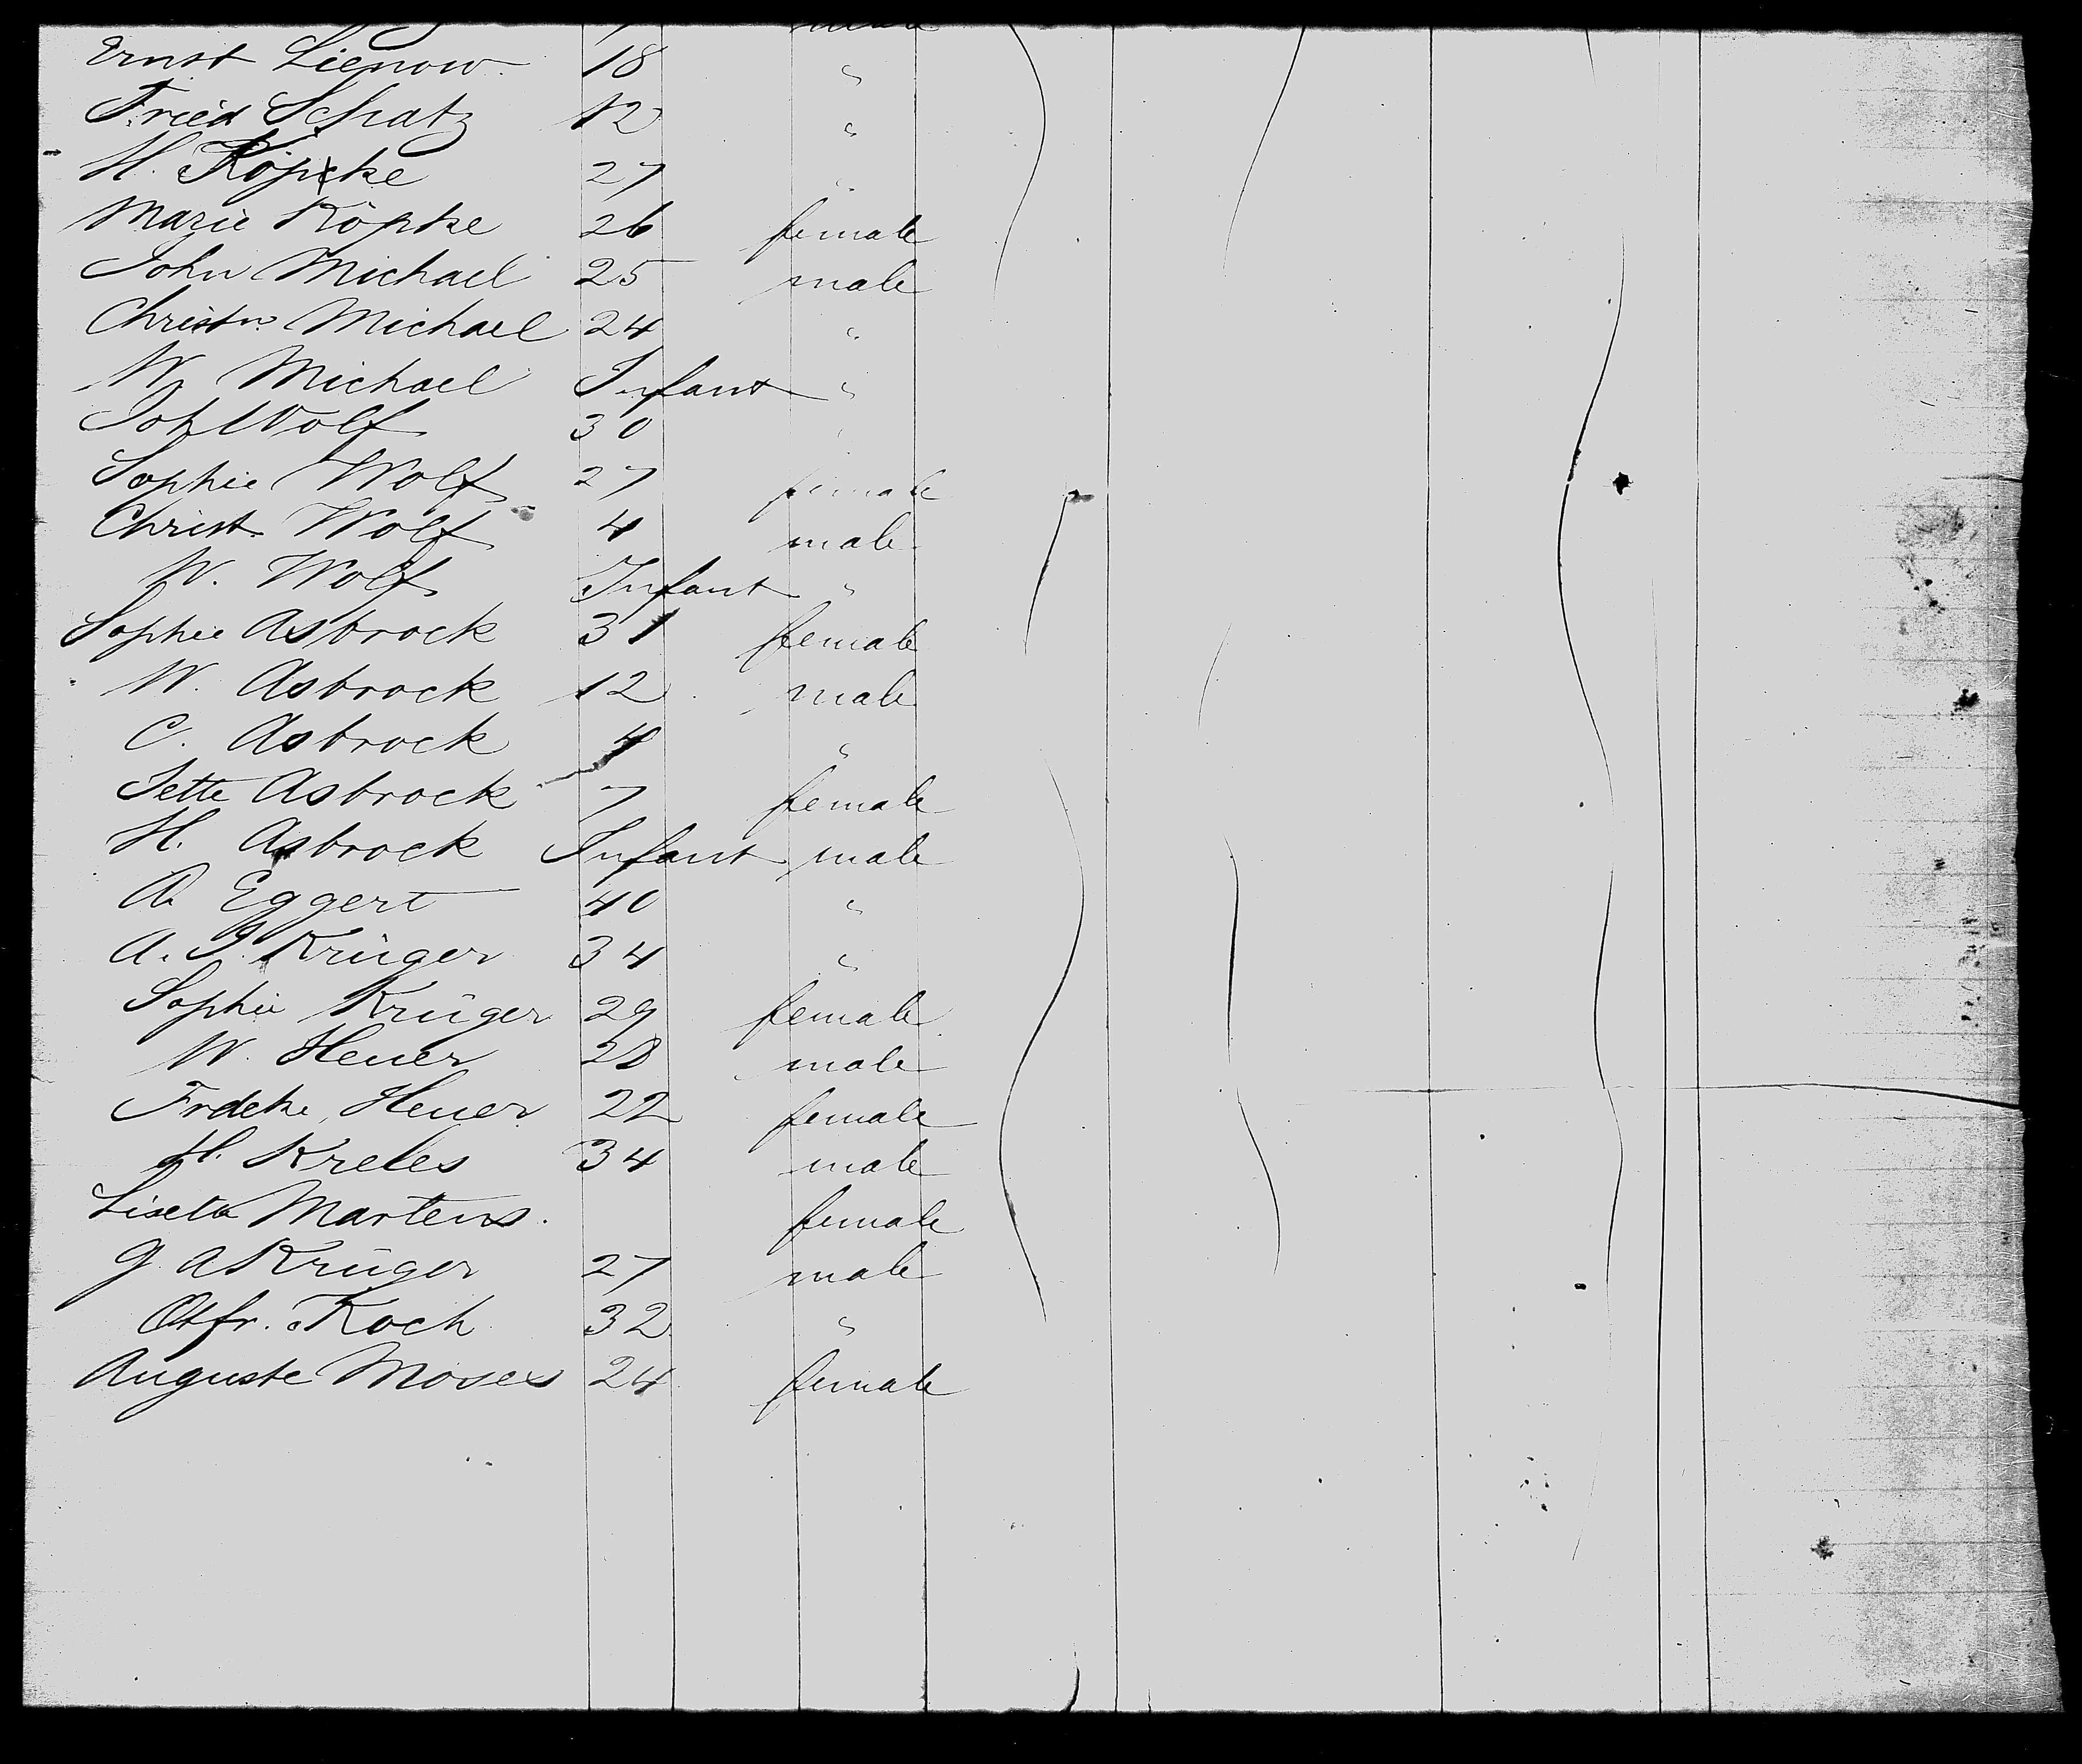 Ernst Lienow 18 "
Fried Schatz 12 "
H. Köpcke 27 "
Marie Köpke 26 female
John Michael 25 male
Christn. Michael 24 "
W. Michael Infant "
Joh Wolf 30 "
Sophie Wolf 27 female
Christ. Wolf 4 male
W. Wolf Infant "
Sophie Asbrock 31 female
W. Asbrock 12 male
C. Asbrock 4 "
Jette Asbrock 7 female
H. Asbrock Infant male
A. Eggert 40 "
A. J. Krüger 34 "
Sophie Krüger 29 female
W. Heuer 28 male
Frdeke Heuer 22 female
H. Kreles 34 male
Lisette Martens. female
G. A Krüger 27 male
Koch 32 "
Auguste Moses 24 female